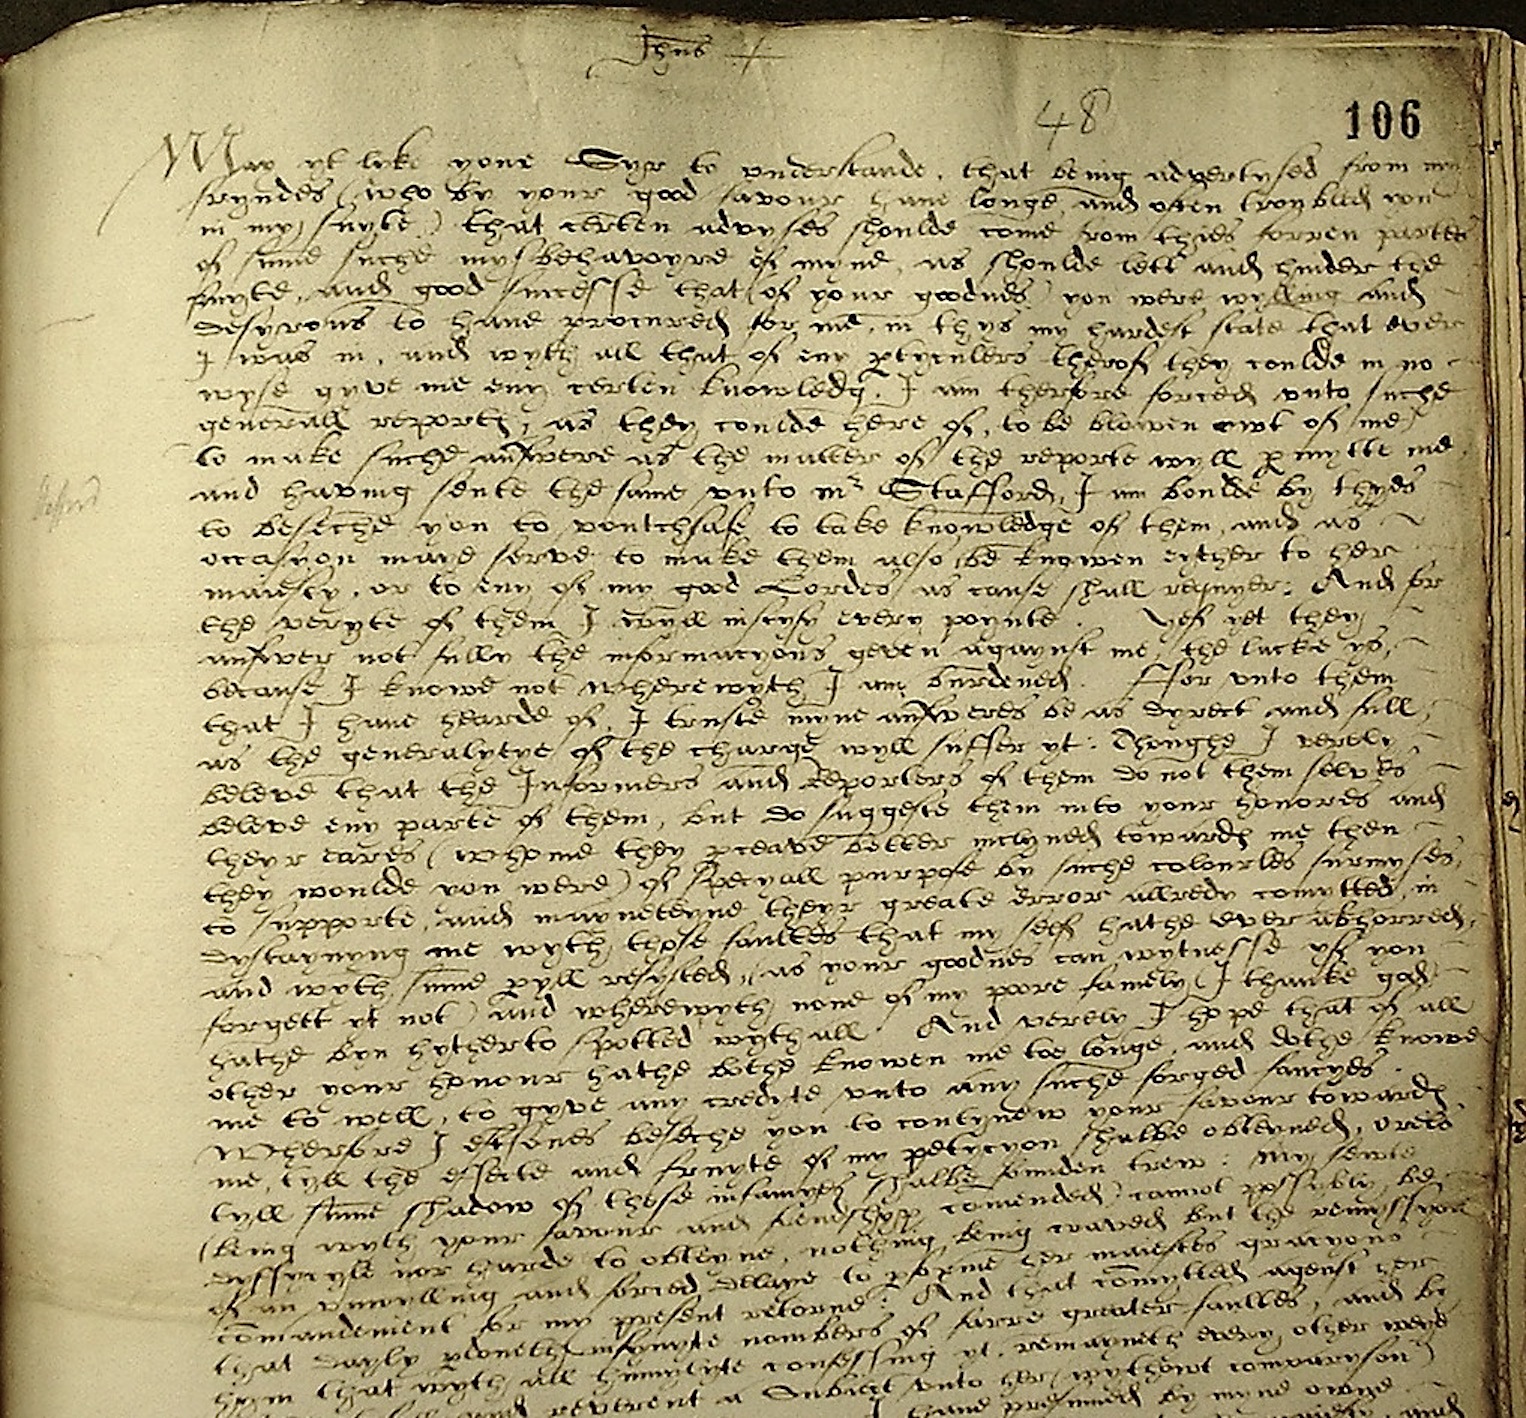 Jhus +
48
106
May yt lyke youe Syr to understande, that being advertysed from my
fryndes (who by your good favour have longe and often troubled you
in my suyte) that certen advyses shoulde come from thies forren partes
of sume suche mysbehavoyre of myne, as shoulde lett and hinder the
suyte, and good successe that (of your goodnes) you were wylling and
desyrous to have procured for me, in thys my hardest state that ever
I was in, and wyth all that of eny ptyculers therof they coulde in no
wyse gyve me eny certen knowledg. I am therfore forced unto suche
generall reportes, as they coulde here of, to be blowen owt of me,
to make suche answere as the matter of the reporte wyll pmytte me,
and having sente the same unto mr Stafford, I am boulde by thyes
to beseche you to voutchsafe to take knowledge of them, and as
occasyon maye serve to make them also be knowen eyther to her
maiesty, or to eny of my good Lordes as cause shall requyer: And for
the veryte of them I wyll iustyfy every poynte. Yef yet they
answer not fully the informacyons geven agaynst me, the lacke ys,
because I knowe not wherewyth I am burdened. Ffor unto them
that I have hearde of, I truste myne answeres be as dyrect and full,
as the generalytye of the charge wyll suffer yt: Thoughe I verely
beleve that the Informers and Reporters of them do not them selves
beleve eny parte of them, but do suggeste them into your honores and
theyr eares (whome they pceave better inclyned towardes me then
they woulde you were) of specyall purpose by suche colourles surmyses,
to supporte, and mayneteyne theyr greate error allredy comytted, in
dystaynyng me wyth those faultes that my self hathe ever abhorred,
and wyth sume pyll resysted, (as your goodnes can wytnesse yf you
forgett yt not) and wherewyth none of my poore famely (I thanke god)
hathe byn hytherto spotted wythall. And verely I hope that of all
other your honour hathe bothe knowen me too longe, and dothe knowe
me to well, to gyve any credyte unto any suche forged fancyes.
Wherfore I eftsones beseche you to contynew your favour towardes
me, tyll the effecte and fruyte of my petycyon shalbe obteyned, or els
tyll sume shadow of those infamyes shalbe founden trew: My sewte
(being wyth your favour and frendshypp comended) cannot possybly be
dyffycyle nor harde to obteyne, nothing being craved but the remyssyon
of an unwylling and forced delaye to pforme her maiestes gracyous
comandement for my present retorne: And that comytted agenst her
that dayly pdoneth infynyte nombers of farre greater faultes, and by
hym that wyth all humylyte confessing yt, remayneth every other weye
and reverent a Subiect unto her (wythowt comparyson)
I have presumed by myne owne